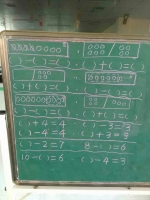 ( ) − ( ) = ( ) ( ) + ( ) = ( )
( ) + ( ) = ( ) ( ) − ( ) = ( )
( ) − ( ) = ( ) ( ) + ( ) = ( )
( ) + 4 = 4 ( ) − 3 = 3
( ) − 4 = 4 ( ) + 3 = 9
( ) − 2 = 7 8 − ( ) = 6
10 − ( ) = 6 ( ) − 4 = 3